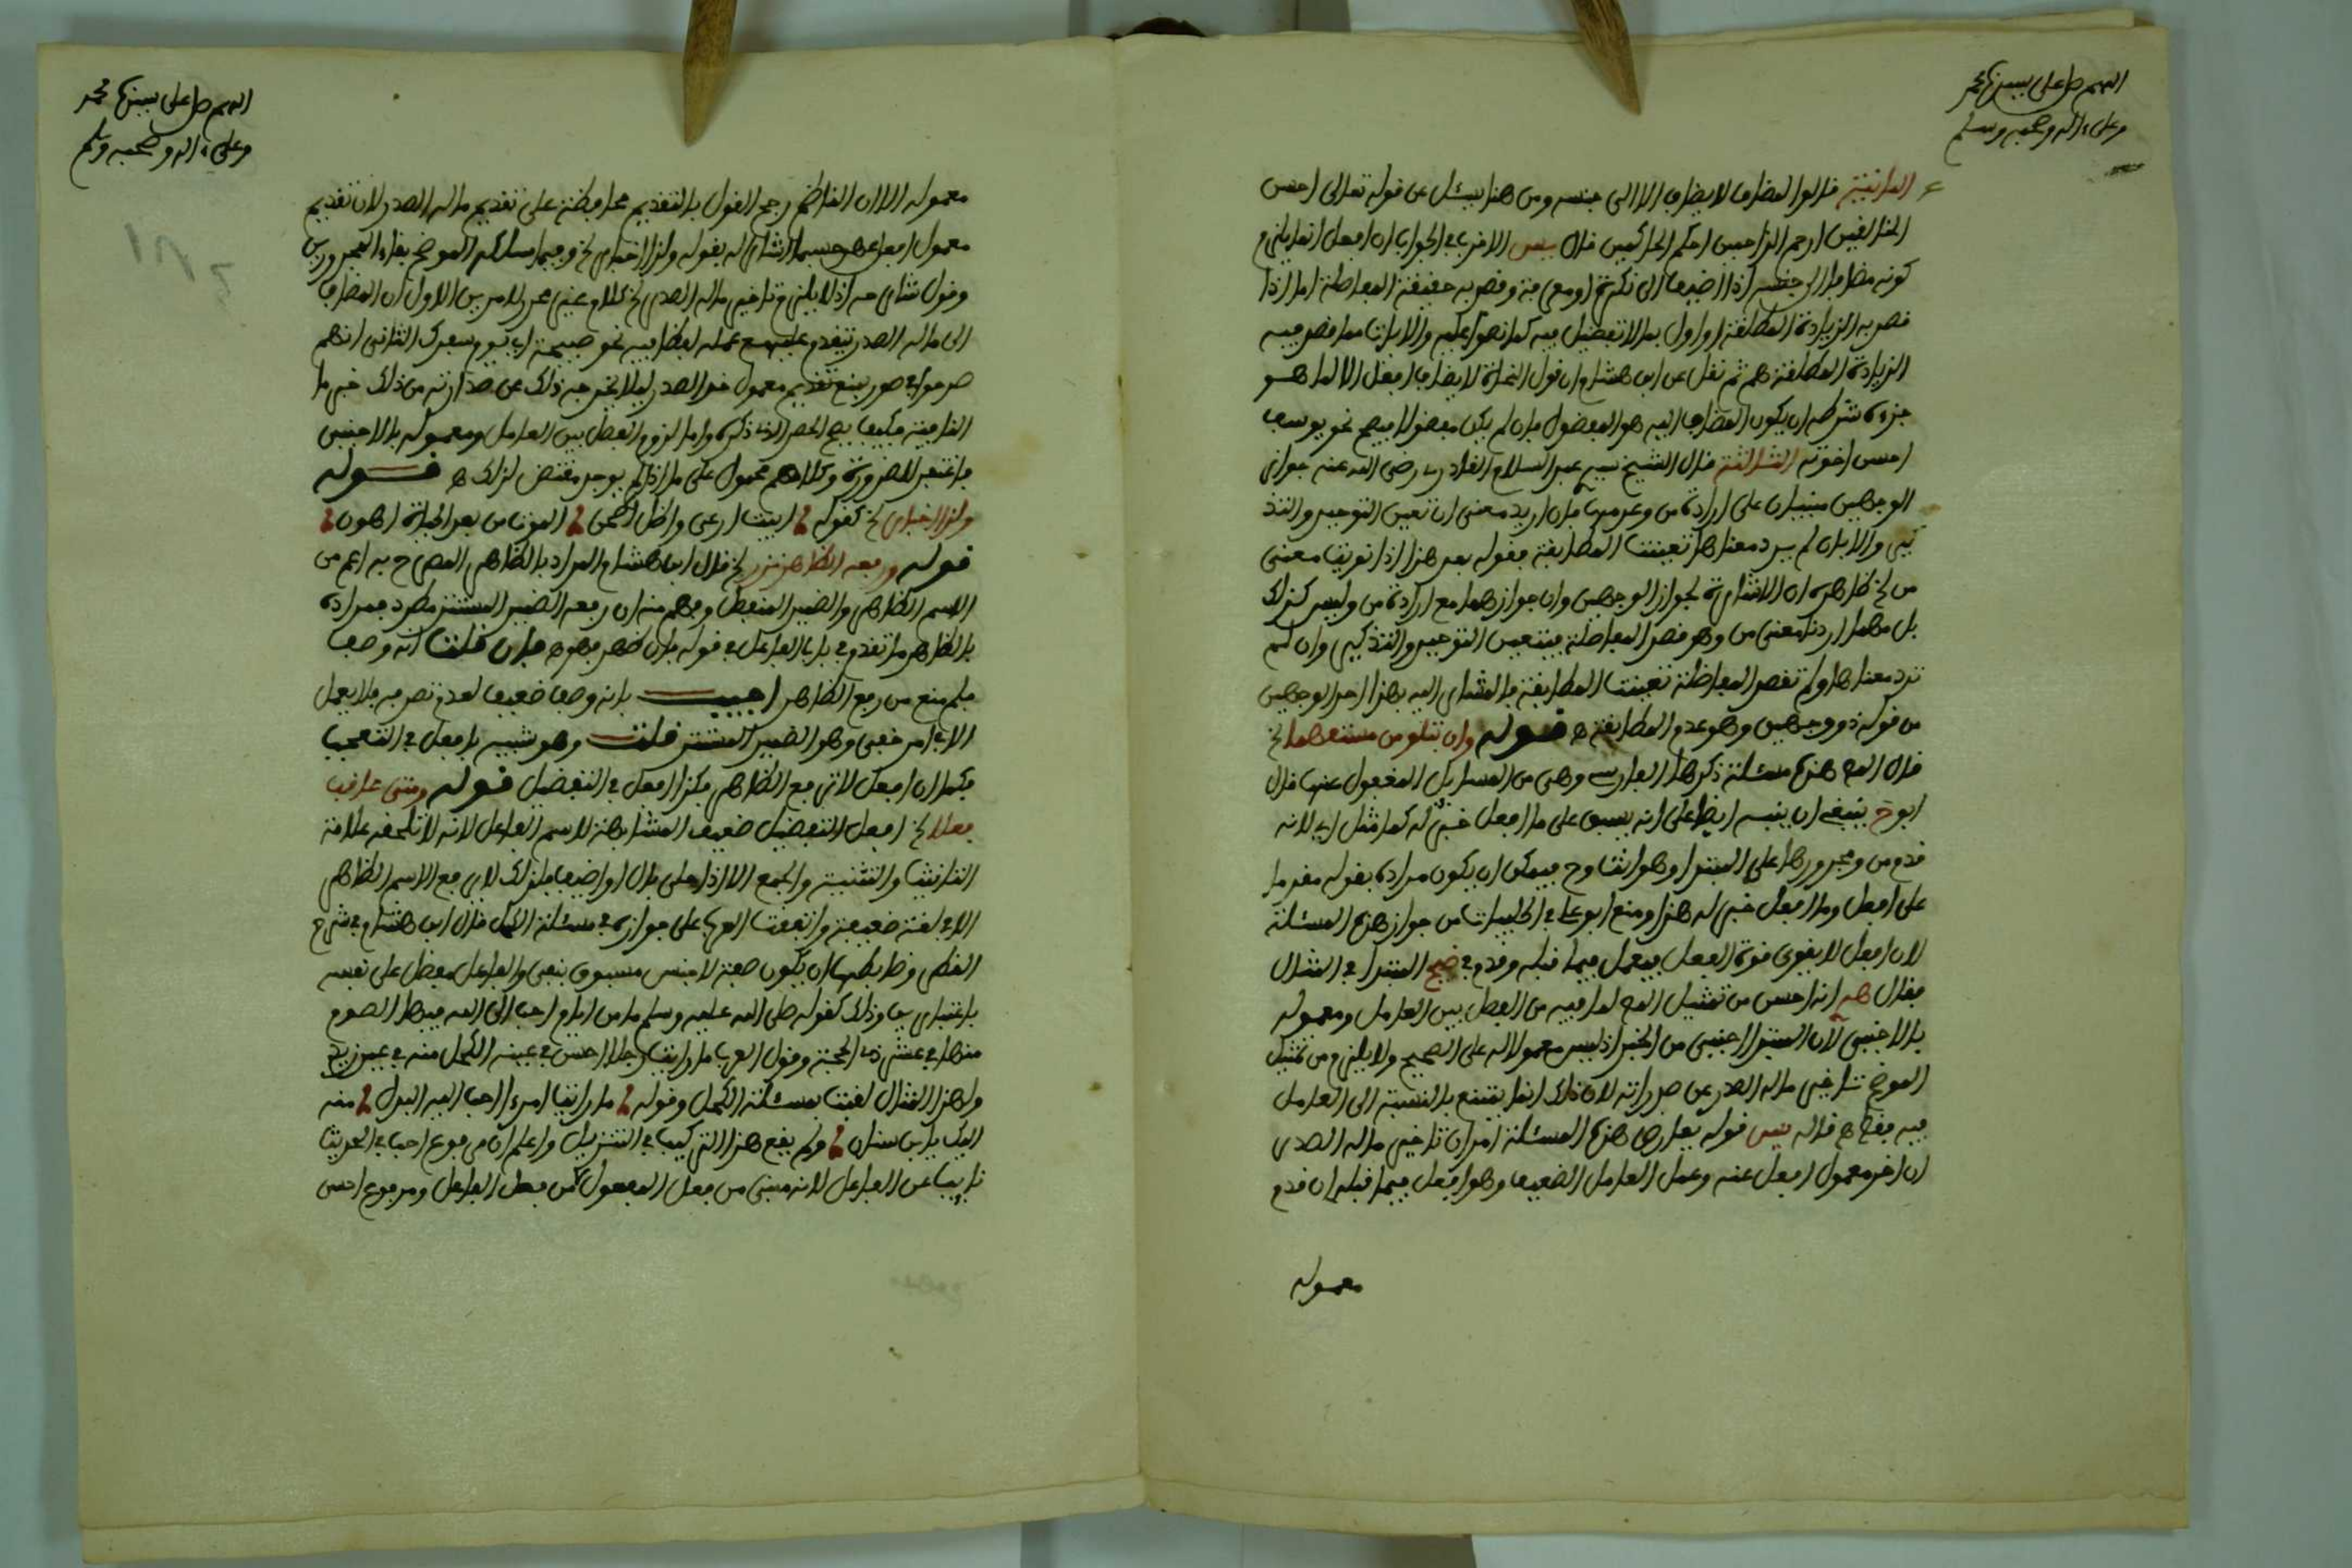 اللهم صل على سيدنا محمد
وعلى ءاله وصحبه وسلم
الثانية قالوا المضاف لا يضاف الا الى جنسه ومن هنا يسئل عن قوله تعالى احسن
الخالقين ارحم الراحمين احكم الحاكمين قال يس الاقرب في الجواب ان افعل انما يلزم
كونه مضافا الى جنسه اذا اضيف الى نكرة او معرفة وقصد به حقيقة المفاضلة اما اذا
قصد به الزيادة المطلقة او اول بما لا تفضيل فيه كما تفهم والايات مما قصد فيه
الزيادة المطلقة هم ثم نقل عن ابن هشام ان قول النحاة لا يضاف افعل الا لما هو
جزءه شرطه ان يكون المضاف اليه هو المفضول فان لم يكن مفضولا فيصح نحو يوسف
احسن اخوته الثالثة قال الشيخ سيد عبد السلام القادري رضي الله عنه جواز
الوجهين مبنيان على ارادة من وعدمها فان اريد معنى ان تعين التوحيد والتذ
كير والا بان لم يرد معناها تعينت المطابقة فقوله بعد هذا اذا نويت معنى
من الخ ظاهره ان الاشارة لجواز الوجهين وان جوازهما مع ارادة من وليس كذلك
بل مهما اردنا معنى من وهو قصد المفاضلة فيتعين التوحيد والتذكير وان لم
ترد معناها ولم تقصد المفاضلة تعينت المطابقة فالمشار اليه بهذا احد الوجهين
من قوله ذو وجهين وهو عدم المطابقة ه قوله وان تكن بتلو من مستفهما الخ
قال المص هذه مسئلة ذكرها الفارسي وهي من المسايل المغفول عنها قال
ابوح ينبغي ان ينبه ايضا على انه يسبق على ما افعل خبر له كما مثل اي لانه
قدم من ومجرورها على المبتدا وهو انت وح فيمكن ان يكون مراده بقوله مقدما
على افعل وما افعل خبر له هذا ومنع ابو علي في الحلبيات من جواز هذه المسئلة
لان افعل لا يقوى قوة الفعل فيعمل فيما قبله وقدم في ضيح المبتدا في المثال
فقال انه احسن من تمثيل المص لما فيه من الفصل بين العامل ومعموله
بالاجنبي لان المبتدا اجنبي من الخبر اذ ليس معمولا له على الصحيح ولا يلزم من تمثيل
الموضح تاخير ما له الصدر عن صدارته لان ذلك انما يمتنع بالنسبة الى العامل
فيه فقط ه قاله يس قوله تعارض هذه المسئلة امران تاخير ما له الصدر
ان اخر معمول افعل عنه وعمل العامل الضعيف وهو افعل فيما قبله ان قدم
معموله
اللهم صل على سيدنا محمد
وعلى ءاله وصحبه وسلم
معموله الا ان الناظم رجح القول بالتقديم محافظة على تقديم ما له الصدر لان تقديم
معمول افعل عهد حسبما اشار له بقوله ولدى اخبار الخ وفيما سلكه الموضح بقاء المجرور بمن
وقول شارحه اذ لا يلزم تاخير ما له الصدر الخ كلام غير محرر لامرين الاول ان المضاف
الى ما له الصدر يتقدم عليه مع عمله لفظا فيه نحو صبيحة اي يوم سفرك الثاني انهم
صرحوا في صور بمنع تقديم معمول خبر الصدر ليلا يخرجه ذلك عن صدارته من ذلك خبر ما
النافية فكيف يصح الحصر الذي ذكره واما لزوم الفصل بين العامل ومعموله بالاجنبي
فاغتفر للضرورة وكلامهم محمول على ما اذا لم يوجد مقتض لذلك ه قوله
ولدى اخبار الخ كقوله
قوله ورفعه الظاهر نزر الخ قال ابن هشام المراد بالظاهر المصرح به اعم من
الاسم الظاهر والضمير المنفصل وفهم منه ان رفعه الضمير المستتر مطرد فمراده
بالظاهر ما تقدم في باب الفاعل في قوله فان ظهر فهو ه فان قلت انه وصف
فلم منع من رفع الظاهر اجيب بانه وصف ضعيف لعدم تصرفه فلا يعمل
الا في امر خفي وهو الضمير المستتر قلت وهو شبيه بافعل في التعجب
فكما ان افعل لا يرفع الظاهر فكذا افعل في التفضيل قوله ومتى عاقب
فعلا الخ افعل التفضيل ضعيف المشابهة لاسم الفاعل لانه لا تلحقه علامة
التانيث والتثنية والجمع الا اذا حلي بال او اضيف فلذلك لا يرفع الاسم الظاهر
الا في لغة ضعيفة واتفقت العرب على جوازه في مسئلة الكحل قال ابن هشام في شرح
القطر وضابطها ان يكون صفة لاسم جنس مسبوق بنفي والفاعل مفضل على نفسه
باعتبارين وذلك كقوله صلى الله عليه وسلم ما من ايام احب الى الله فيها الصوم
منها في عشر ذي الحجة وقول العرب ما رايت رجلا احسن في عينه الكحل منه في عين زيد
ولهذا المثال لقبت بمسئلة الكحل وقوله ما رايت امرءا احب اليه البذل منه
اليك يا ابن سنان ولم يقع هذا التركيب في التنزيل واعلم ان مرفوع احب في الحديث
نايب عن الفاعل لانه مبني من فعل المفعول لا من فعل الفاعل ومرفوع احسن